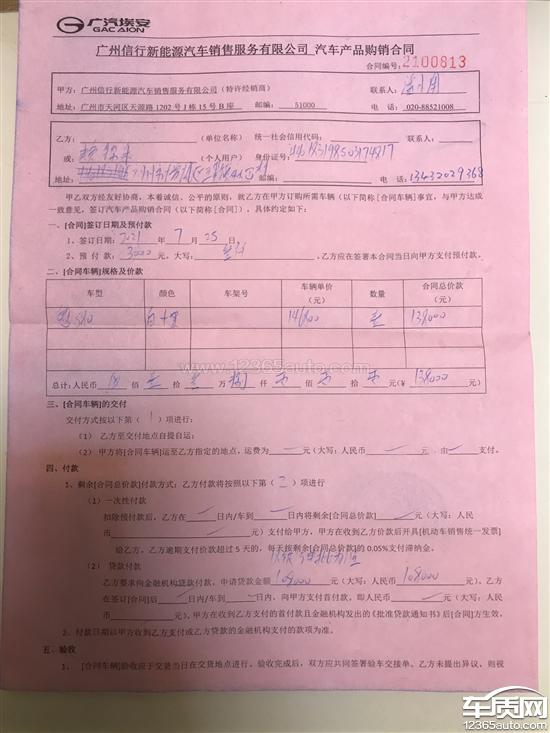 广汽埃安
GAC AION
广州信行新能源汽车销售服务有限公司 汽车产品购销合同
合同编号:2100813
甲方:广州信行新能源汽车销售服务有限公司(特许经销商) 联系人:
地址:广州市天河区天源路1202号J栋15号B座 邮编: 51000 电话:020-88521008
乙方: (单位名称) 统一社会信用代码: 联系人:
或: (个人用户) 身份证号:
地址: 邮编: 电话:
甲乙双方经友好协商,本着诚信、公平的原则,就乙方在甲方订购所需车辆(以下简称[合同车辆])事宜,与甲方达成
一致意见,签订汽车产品购销合同(以下简称[合同]),具体约定如下:
一、[合同]签订日期及预付款
1、签订日期:2021年 7 月 25 日。
2、预 付 款:3000元,大写: ,乙方应在签署本合同当日向甲方支付预付款。
二、[合同车辆]规格及价款
车型 颜色 车架号 车辆单价(元) 数量 合同总价款(元)
146800 138000
总计:人民币 佰 拾 万 仟 佰 拾 元(¥ 138000 )
三、[合同车辆]的交付
交付方式按以下第( 1 )项进行:
(1) 乙方至交付地点自提自运:
(2) 甲方将[合同车辆]运至乙方指定的地点,运费为 元(大写:人民币 ),由 支付。
四、付款
1、剩余[合同总价款]付款方式:乙方付款将按照以下第( 二 )项进行
(1)一次性付款
扣除预付款后,乙方在 日内/车到 日内将剩余[合同总价款] 元(大写:人民
币 元)支付给甲方,甲方在收到乙方价款后开具[机动车销售统一发票]
给乙方,乙方逾期支付价款超过5天的,每天按剩余[合同总价款]的0.05%支付滞纳金。
(2) 贷款付款
乙方要求向金融机构贷款付款,申请贷款金额 108000 元(大写:人民币 108000 元)。乙方
在签订[合同]后 日内/车到 日内,向甲方支付首付款,即人民币 元(大写:人民币
元),甲方在收到乙方支付的首付款且金融机构发出的《批准贷款通知书》后[合同]方生效。
2、付款日期以甲方收到乙方支付或乙方贷款的金融机构支付的款项为准。
五、验收
1、[合同车辆]验收应于交易当日在交货地点进行。验收完成后,双方应共同签署验车交接单。乙方未提出异议,则视
www.12365auto.com
车质网
12365auto.com